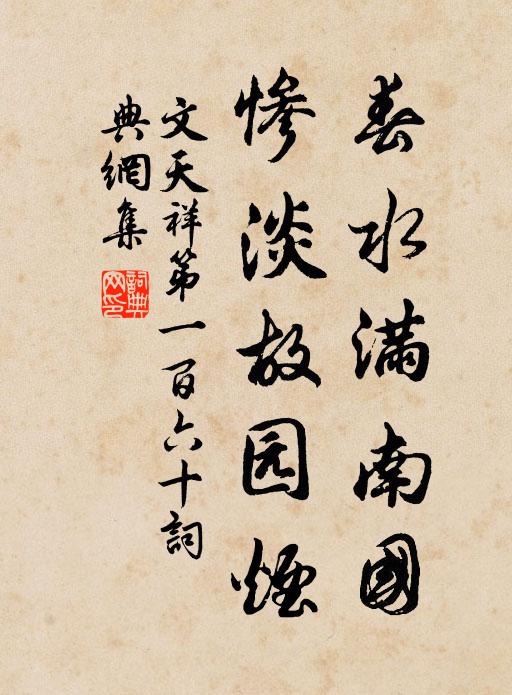 春水满南國
惨淡故园煙
文天祥第一百六十詞
典網集
詞典
网印